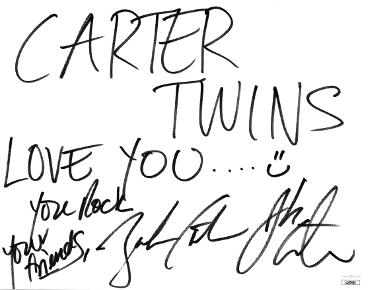 CARTER
TWINS
LOVE YOU....
You Rock
Your
friends,